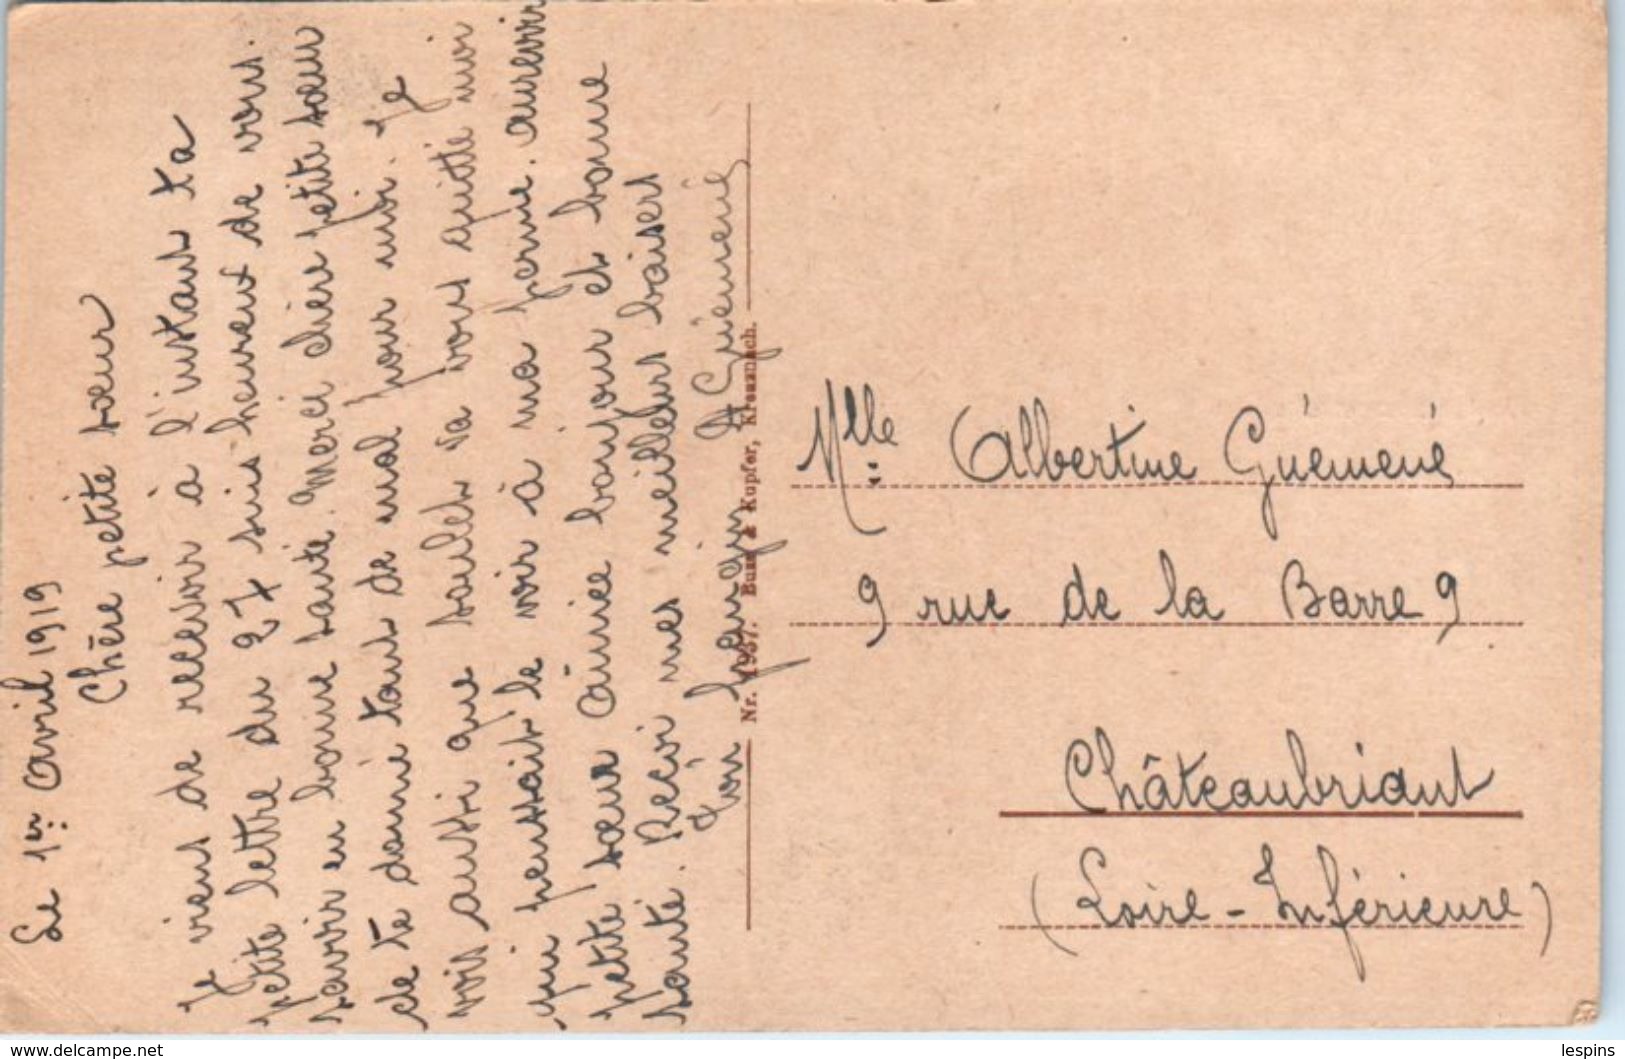 Le 1er Avril 1919
Chère petite sœur
Je viens de recevoir à l'instant ta
petite lettre du 27 suis heureux de vous
savoir en bonne santé. Merci chère petite sœur
de te donné tant de mal pour moi. Je
vois aussi que va vous quitté moi
qui pensait le voir à ma perme. aurevoir
petite sœur Aimée bonjour et bonne
santé. Recoi mes meilleurs baisers
Ton frangin A Guémené
Nr. 1937. Buss & Kupfer, Kreuznach.
Mlle Albertine Guémené
9 rue de la Barre 9
Châteaubriant
(Loire-Inférieure)
www.delcampe.net
lespins